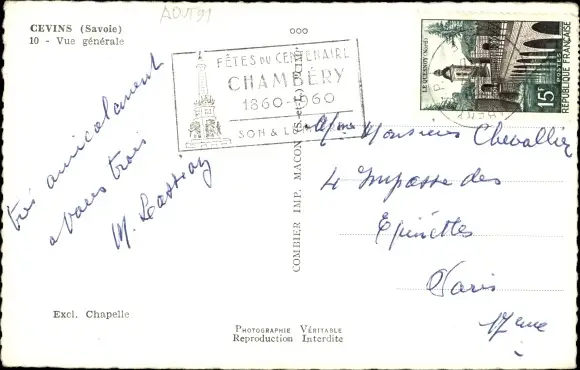 AOUT 91
CEVINS (Savoie)
10 - Vue générale
FÊTES DU CENTENAIRE
CHAMBÉRY
1860-1960
SON &
LE QUESNOY (Nord)
15F
POSTES
RÉPUBLIQUE FRANÇAISE
très amicalement
a vous trois
M.
COMBIER IMP. MACON (S.-et-L.)
Mme Monsieur Chevallier
4 Impasse des
Epinettes
Paris
17eme
Excl. Chapelle
PHOTOGRAPHIE VÉRITABLE
Reproduction Interdite